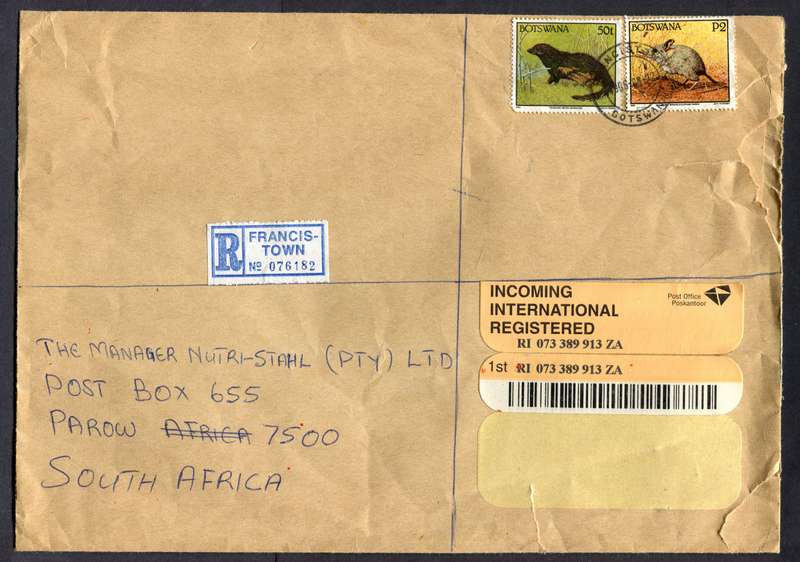 BOTSWANA 50t
BOTSWANA P2
BOTSWANA
R FRANCIS-
TOWN
Nº 076182
INCOMING
INTERNATIONAL
REGISTERED
Post Office
Poskantoor
RI 073 389 913 ZA
1st RI 073 389 913 ZA
THE MANAGER NUTRI-STAHL (PTY) LTD
POST BOX 655
PAROW AFRICA 7500
SOUTH AFRICA